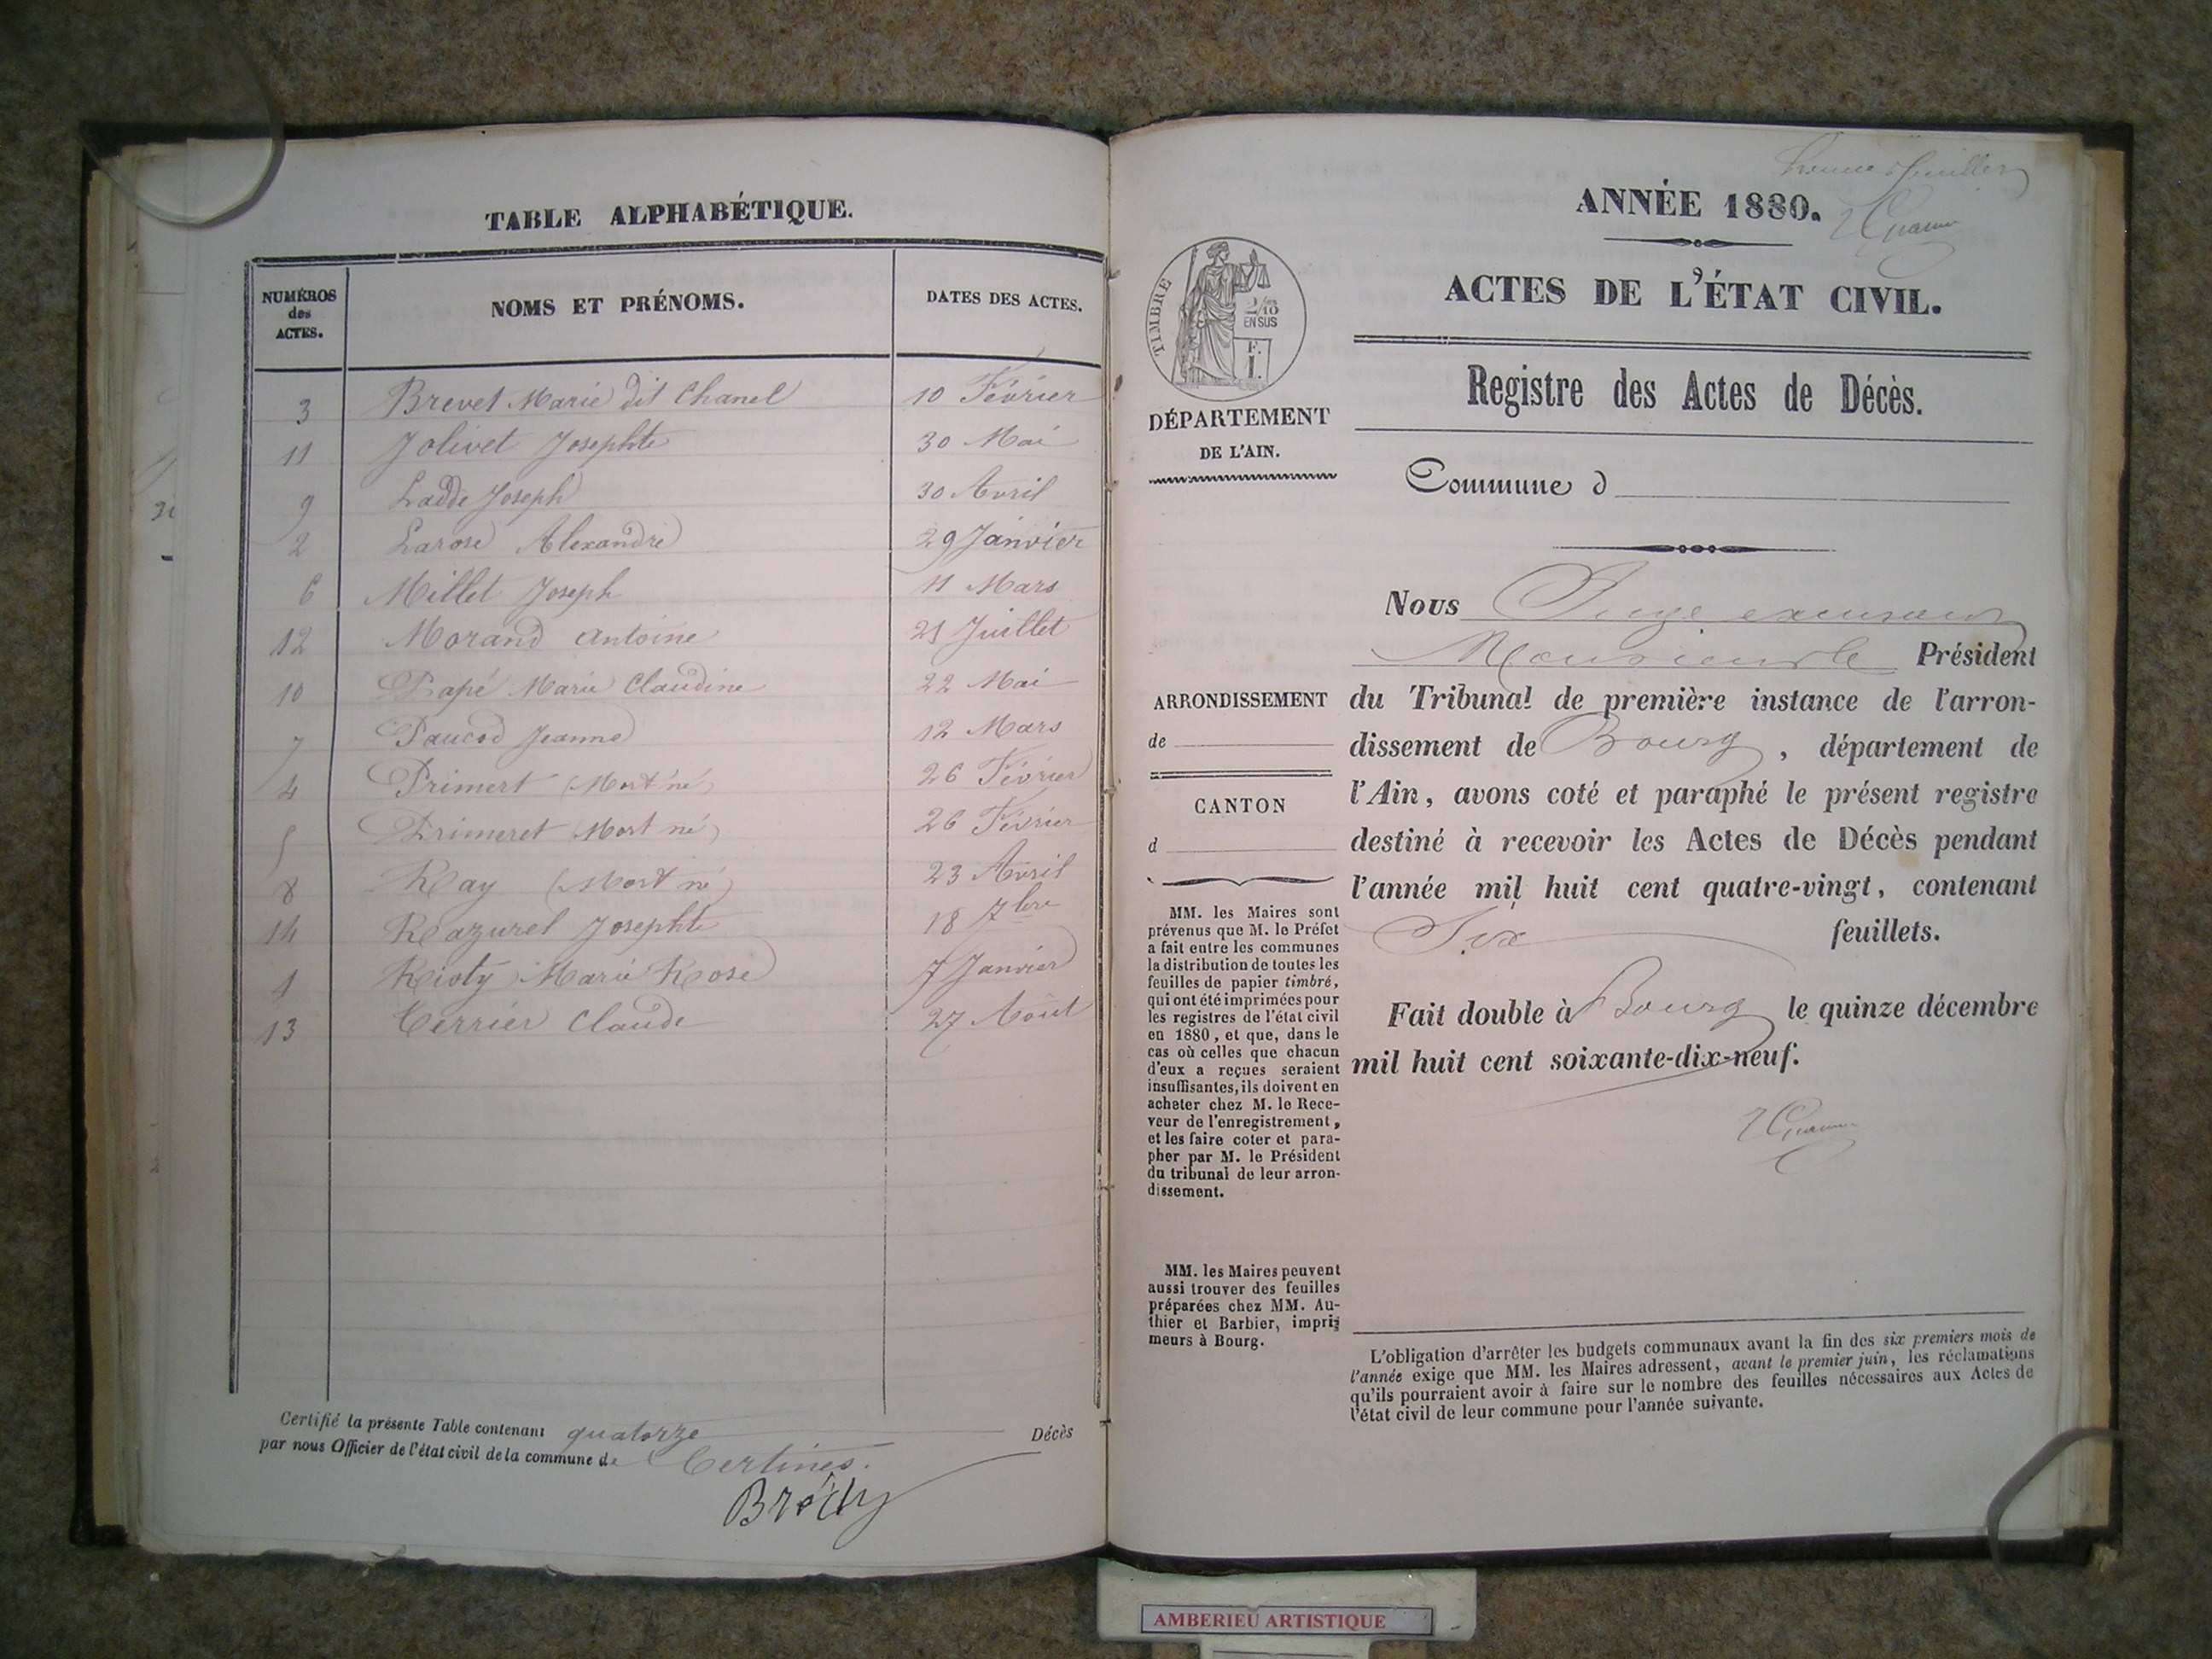 TABLE ALPHABÉTIQUE.
NUMÉROS des ACTES.
NOMS ET PRÉNOMS.
DATES DES ACTES.
3 Brevet Marie dit Chanel 10 Février
11 Jolivet Josephte 30 Mai
9 Ladde Joseph 30 Avril
2 Larose Alexandre 29 Janvier
6 Millet Joseph 11 Mars
12 Morand Antoine 21 Juillet
10 Papé Marie Claudine 22 Mai
7 Paucod Jeanne 12 Mars
4 Primert (Mort né) 26 Février
5 Primeret (Mort né) 26 Février
8 Ray (Mort né) 23 Avril
14 Razurel Josephte 18 7bre
1 Marie Rose 7 Janvier
13 Terrier Claude 27 Août
Certifié la présente Table contenant quatorze Décès
par nous Officier de l'état civil de la commune de Certines.
Bréchy
ANNÉE 1880.
ACTES DE L'ÉTAT CIVIL.
Registre des Actes de Décès.
TIMBRE
2/10
EN SUS
F.
1.
DÉPARTEMENT
DE L'AIN.
Commune d
Nous Juge
Monsieur le Président
du Tribunal de première instance de l'arron-
dissement de Bourg, département de
l'Ain, avons coté et paraphé le présent registre
destiné à recevoir les Actes de Décès pendant
l'année mil huit cent quatre-vingt, contenant
Six feuillets.
Fait double à Bourg le quinze décembre
mil huit cent soixante-dix-neuf.
ARRONDISSEMENT
de
CANTON
d
MM. les Maires sont
prévenus que M. le Préfet
a fait entre les communes
la distribution de toutes les
feuilles de papier timbré,
qui ont été imprimées pour
les registres de l'état civil
en 1880, et que, dans le
cas où celles que chacun
d'eux a reçues seraient
insuffisantes, ils doivent en
acheter chez M. le Rece-
veur de l'enregistrement,
et les faire coter et para-
pher par M. le Président
du tribunal de leur arron-
dissement.
MM. les Maires peuvent
aussi trouver des feuilles
préparées chez MM. Au-
thier et Barbier, impri-
meurs à Bourg.
L'obligation d'arrêter les budgets communaux avant la fin des six premiers mois de
l'année exige que MM. les Maires adressent, avant le premier juin, les réclamations
qu'ils pourraient avoir à faire sur le nombre des feuilles nécessaires aux Actes de
l'état civil de leur commune pour l'année suivante.
AMBERIEU ARTISTIQUE